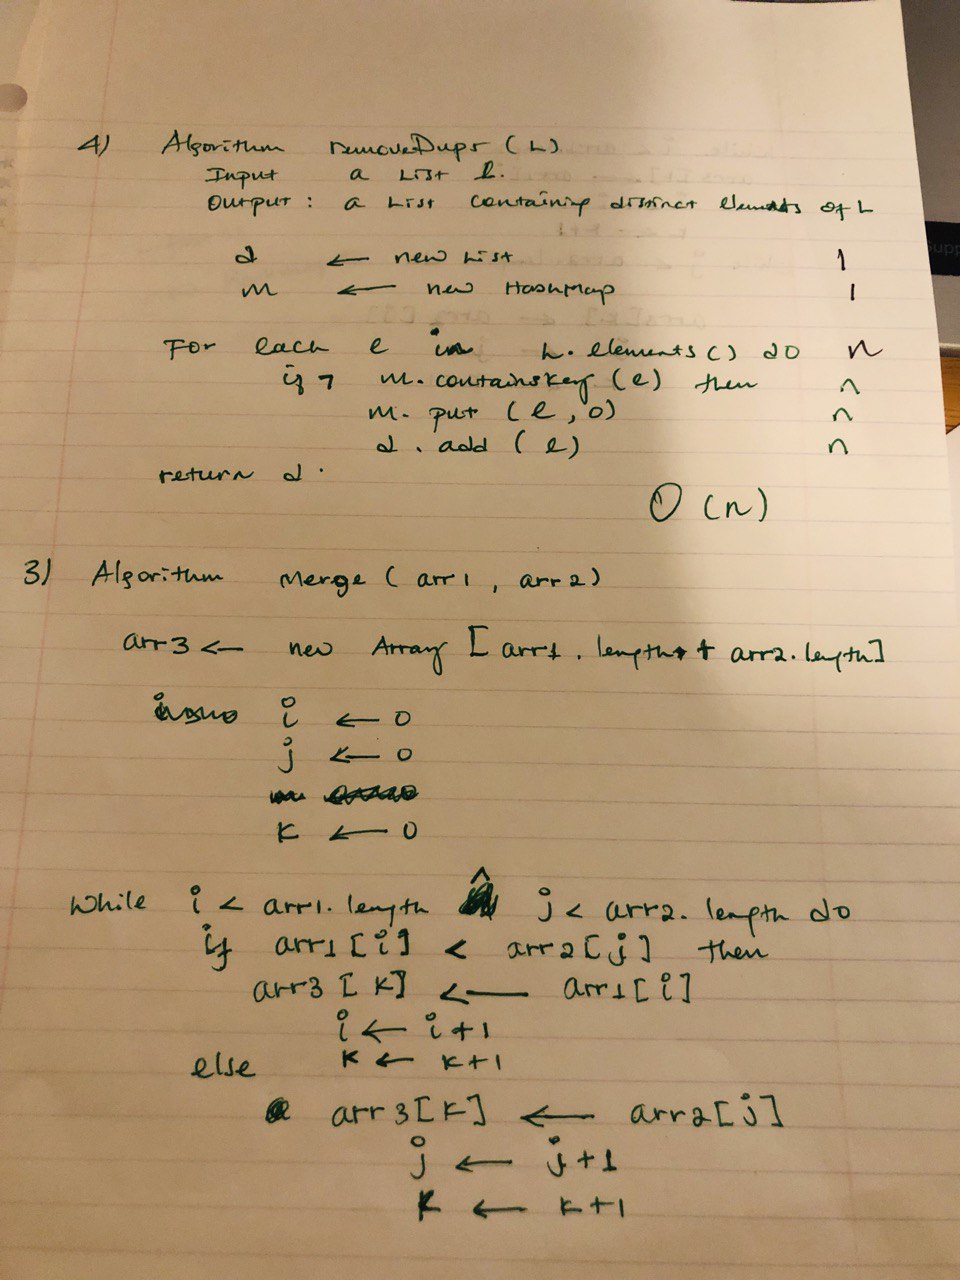 4) Algorithm removeDups (L)
Input a List L.
Output : a List containing distinct elements of L
d ← new List 1
m ← new HashMap 1
For each e in L.elements() do n
if ¬ m.containsKey(e) then n
m.put (e, 0) n
d.add (e) n
return d.
O(n)
3) Algorithm Merge (arr1, arr2)
arr3 ← new Array [arr1.length + arr2.length]
i ← 0
j ← 0
k ← 0
While i < arr1.length ^ j < arr2.length do
if arr1[i] < arr2[j] then
arr3[k] ← arr1[i]
i ← i+1
k ← k+1
else
arr3[k] ← arr2[j]
j ← j+1
k ← k+1